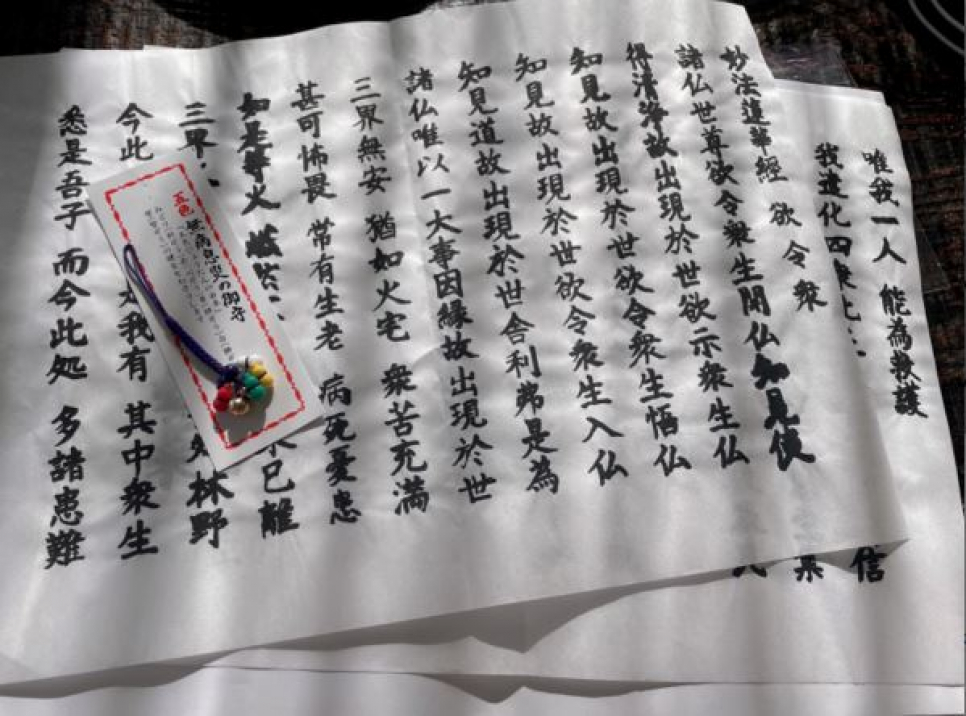 唯我一人 能為救護
信
我遣化四衆比
妙法蓮華經 欲令衆
諸仏世尊欲令衆生開仏知見使
得清浄故出現於世欲示衆生仏
知見故出現於世欲令衆生悟仏
知見故出現於世欲令衆生入仏
知見道故出現於世舎利弗是為
諸仏唯以一大事因縁故出現於世
三界無安 猶如火宅 衆苦充満
甚可怖畏 常有生老 病死憂患
如是等火 已離
三界 林野
今此 我有 其中衆生
悉是吾子 而今此処 多諸患難
五色 無病息災の御守